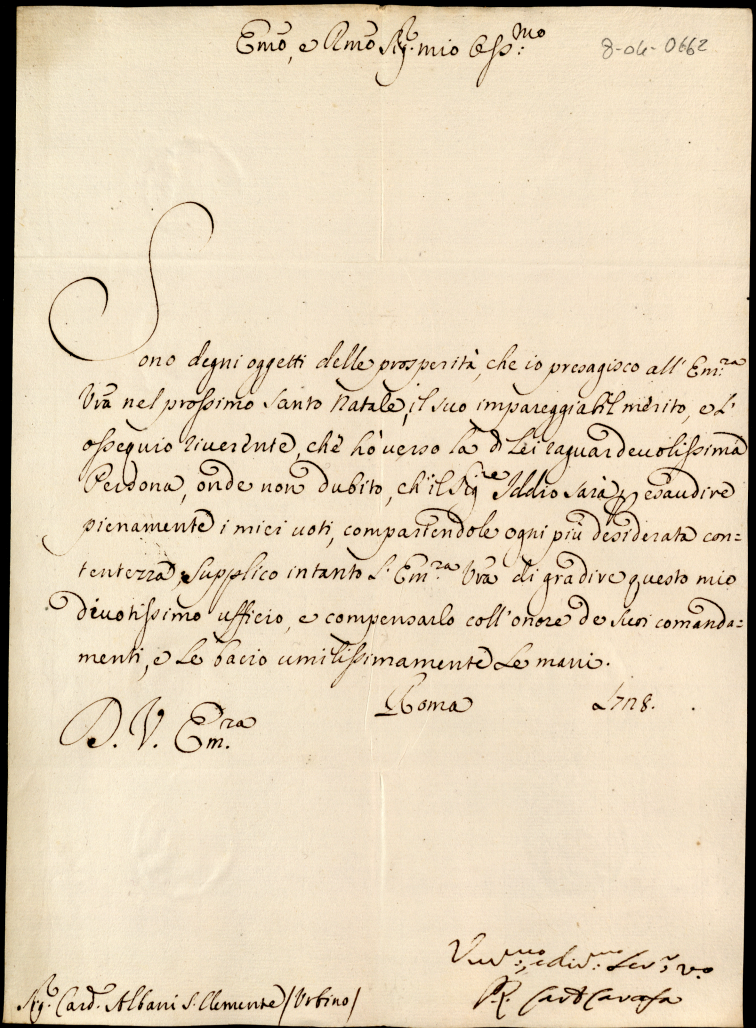 Emo, e Rmo Sig.r mio Oss.mo
8-06-0662
Sono degni oggetti delle prosperità, che io presagisco all' Em.ra
Vra nel prossimo Santo Natale, il suo impareggiabil merito, e l'
ossequio riverente, che hò verso la di Lei raguardevolissima
Persona, onde non dubito, ch'il Sig.re Iddio sarà p esaudire
pienamente i miei voti, compartendole ogni più desiderata con=
tentezza; Supplico intanto L' Em.ra Vra di gradire questo mio
divotissimo ufficio, e compensarlo coll' onore de Suoi comanda=
menti, e Le bacio umilissimamente Le mani.
Roma 1728.
D. V. Em.ra
Sig.r Card. Albani S. Clemente / Urbino /
Card Carafa